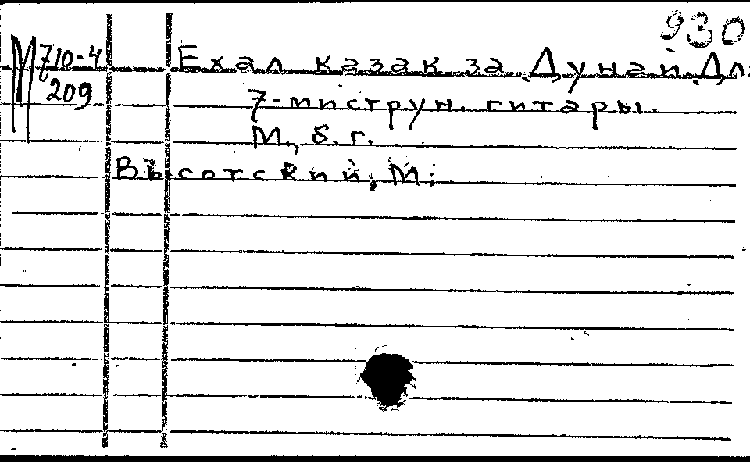 930
М 710-4
209
Ехал казак за Дунай. Для
7-миструн. гитары.
М., б. г.
Высотский, М.